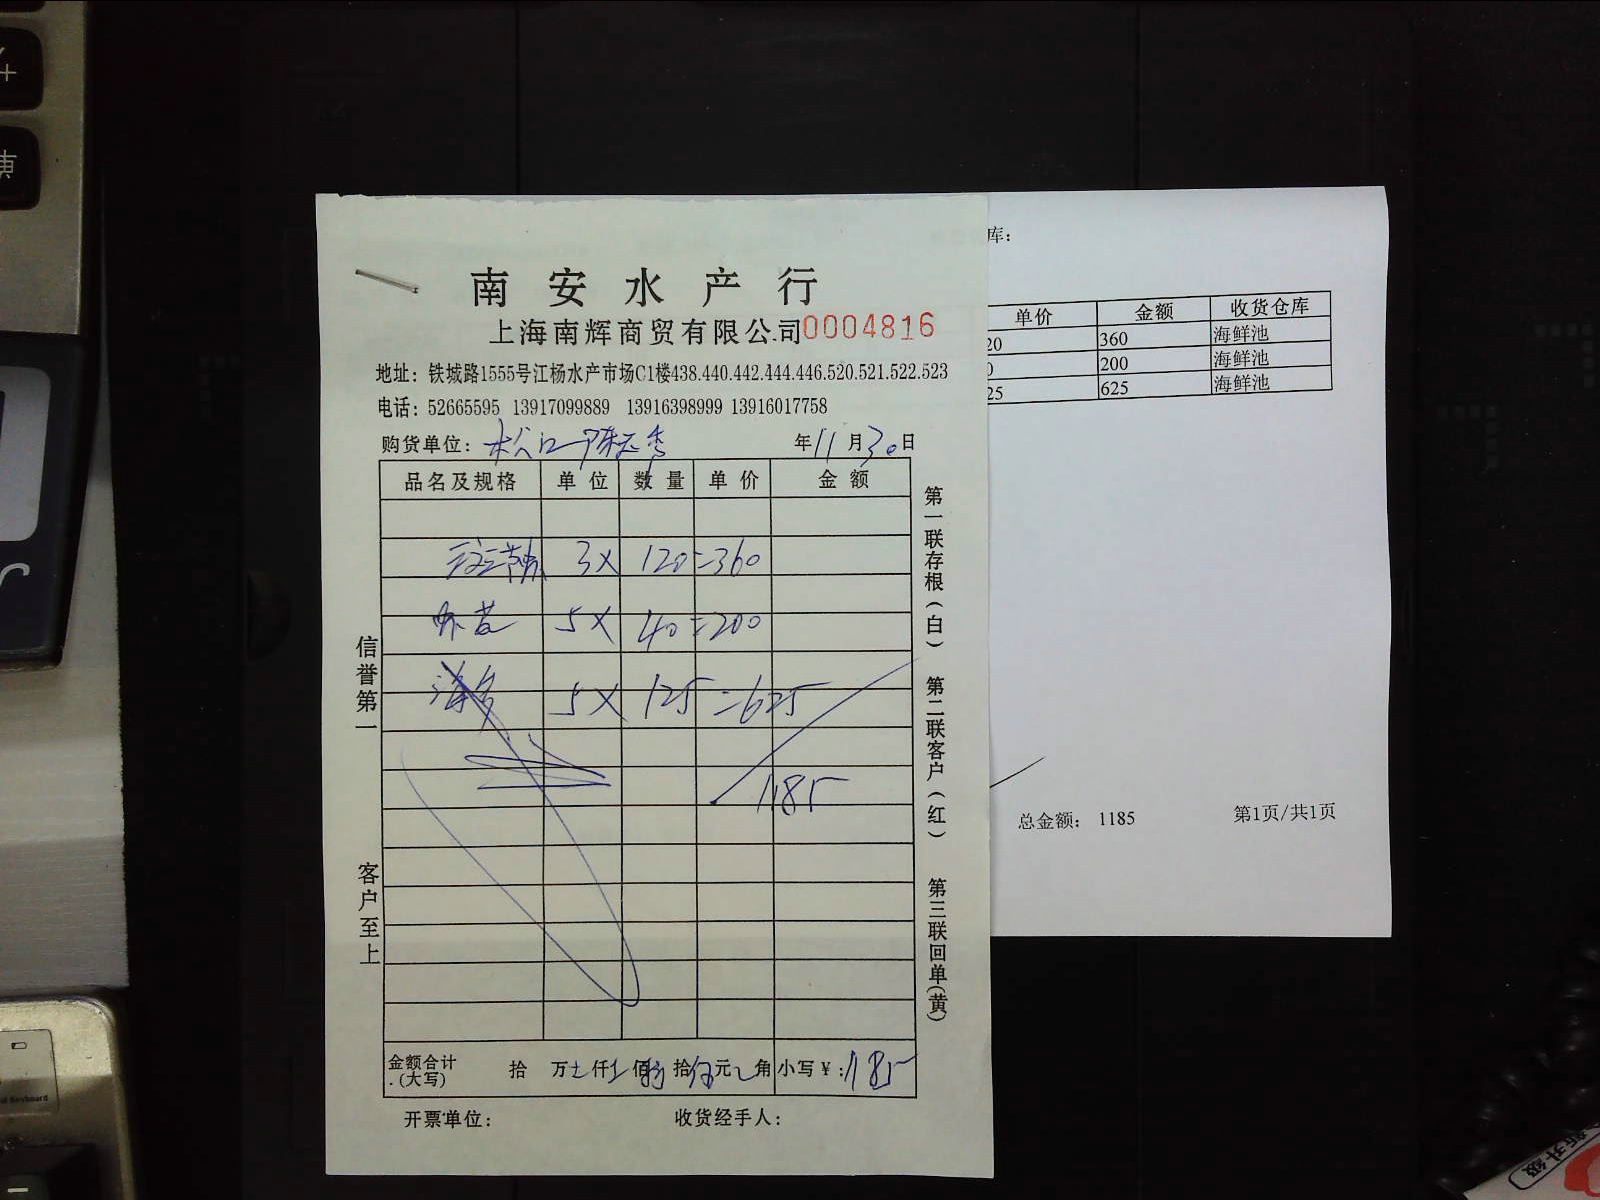 南安水产行
上海南辉商贸有限公司 0004816
地址：铁城路1555号江杨水产市场C1楼438.440.442.444.446.520.521.522.523
电话：52665595 13917099889 13916398999 13916017758
购货单位： 年11月30日
品名及规格 单位 数量 单价 金额
3× 120=360
5× 40=200
5× 125=625
1185
金额合计(大写) 拾 万 仟 佰 拾 元 角 小写￥：1185
开票单位： 收货经手人：
信誉第一 客户至上
第一联存根(白) 第二联客户(红) 第三联回单(黄)
库：
单价 金额 收货仓库
20 360 海鲜池
0 200 海鲜池
25 625 海鲜池
总金额： 1185 第1页/共1页